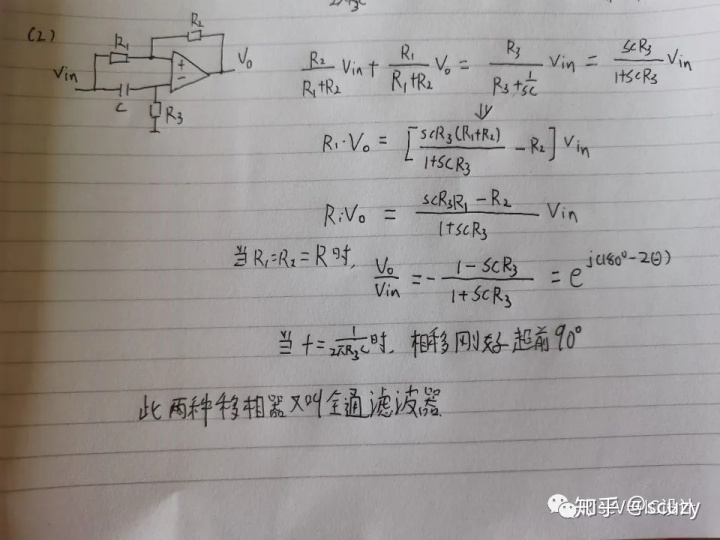 (2)
R₁
R₂
Vin
+
−
V₀
C
R₃
R₂/(R₁+R₂) Vin + R₁/(R₁+R₂) V₀ = R₃/(R₃+1/sc) Vin = scR₃/(1+scR₃) Vin
⇓
R₁·V₀ = [scR₃(R₁+R₂)/(1+scR₃) − R₂] Vin
R₁V₀ = (scR₃R₁−R₂)/(1+scR₃) Vin
当R₁=R₂=R时, V₀/Vin = −(1−scR₃)/(1+scR₃) = e^{j(180°−2θ)}
当f=1/(2πR₃C)时, 相移刚好超前90°
此两种移相器又叫全通滤波器
知乎 @scuzy